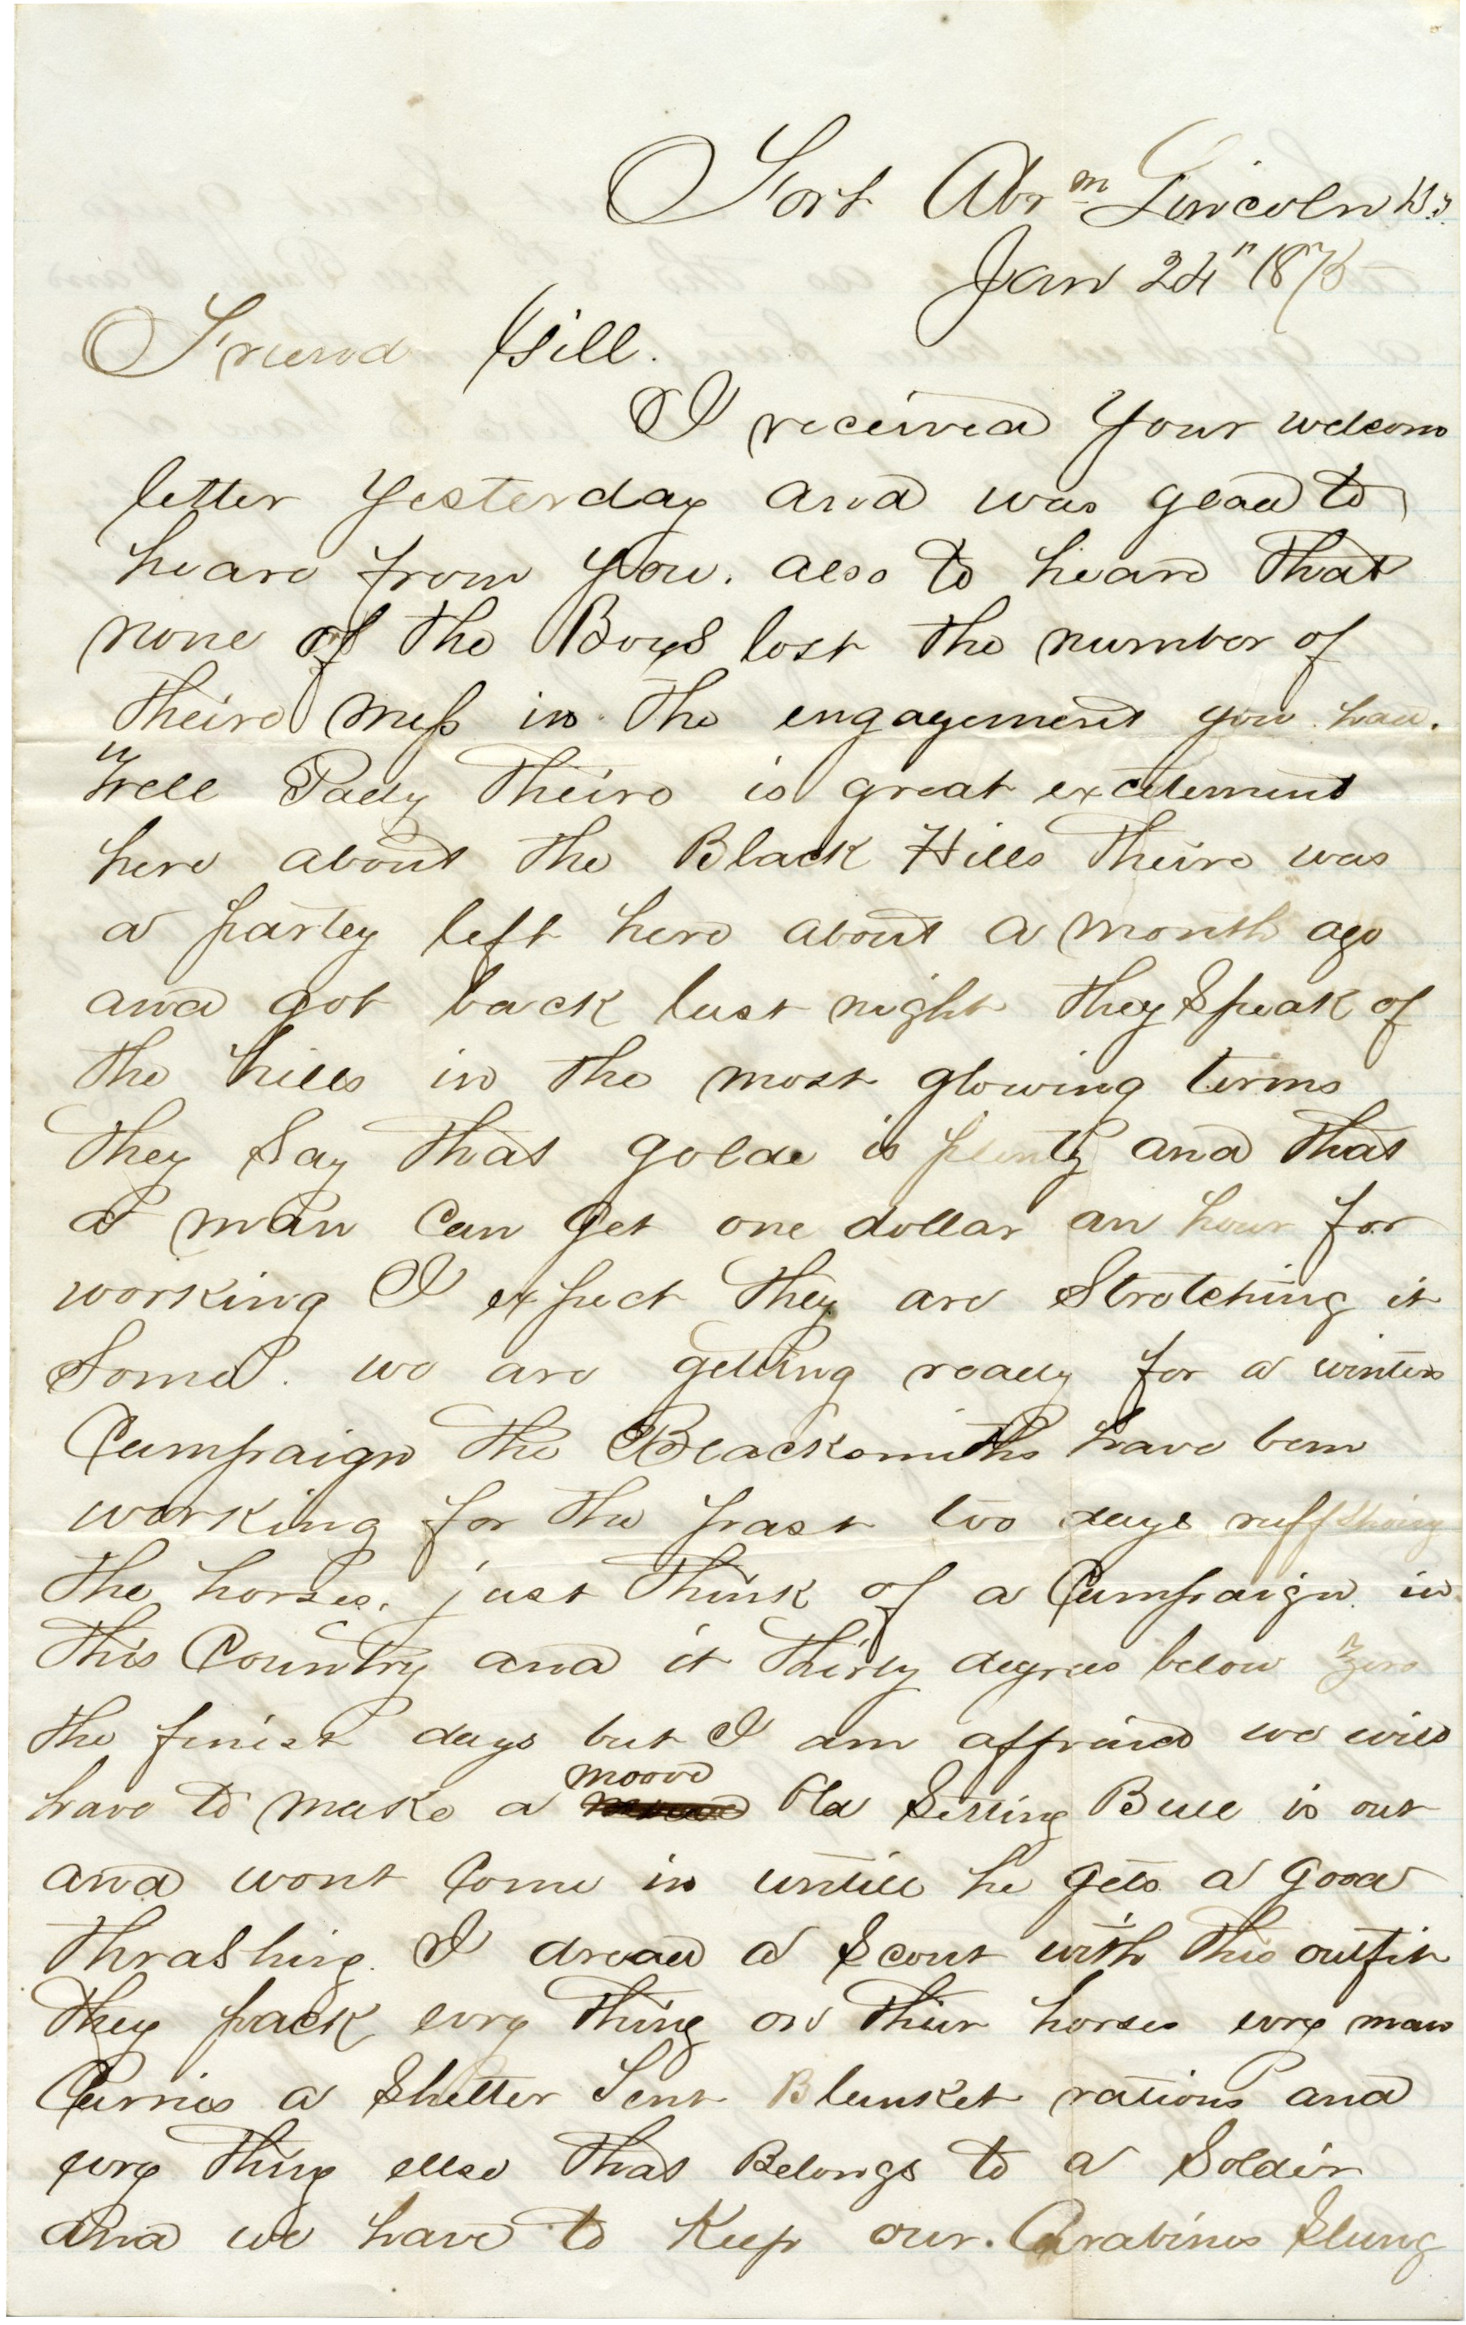 Fort Abrm Lincoln D.T.
Jan 24" 1875
Friend Gill.
I received your welcom
letter yesterday and was glad to
heare from you. also to heare that
none of the Boys lost the number of
theire mess in the engagement you had.
Well Pady theire is great excitement
here about the Black Hills theire was
a partey left here about a month ago
and got back last night they Speak of
the hills in the most glowing terms
they Say that golde is plenty and that
a man can get one dollar an hour for
working I expect they are Stretching it
Some. we are getting ready for a winter
Campaign the Blacksmiths have been
working for the past two days ruff shoing
the horses. just think of a Campaign in
this Country and it thirty degrees below zero
the finest days but I am affraid we will
have to make a moove Old Sitting Bull is out
and wont come in untill he gets a good
thrashing. I dread a Scout with this outfit
they pack evry thing on their horses evry man
Carries a Shelter Tent Blanket rations and
evry thing ellse that Belongs to a Soldier
and we have to Keep our. Carabines Slung